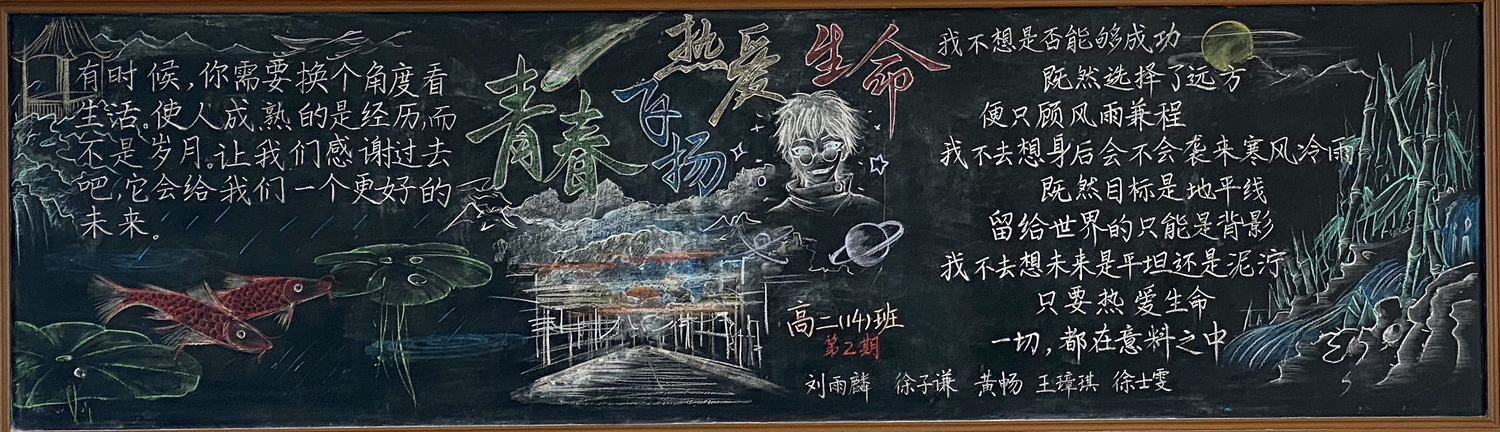 有时候，你需要换个角度看
生活。使人成熟的是经历，而
不是岁月。让我们感谢过去
吧，它会给我们一个更好的
未来。
热爱生命
青春飞扬
我不想是否能够成功
既然选择了远方
便只顾风雨兼程
我不去想身后会不会袭来寒风冷雨
既然目标是地平线
留给世界的只能是背影
我不去想未来是平坦还是泥泞
只要热爱生命
一切，都在意料之中
高二(14)班
第2期
刘雨麟 徐子谦 黄畅 王璋琪 徐士雯